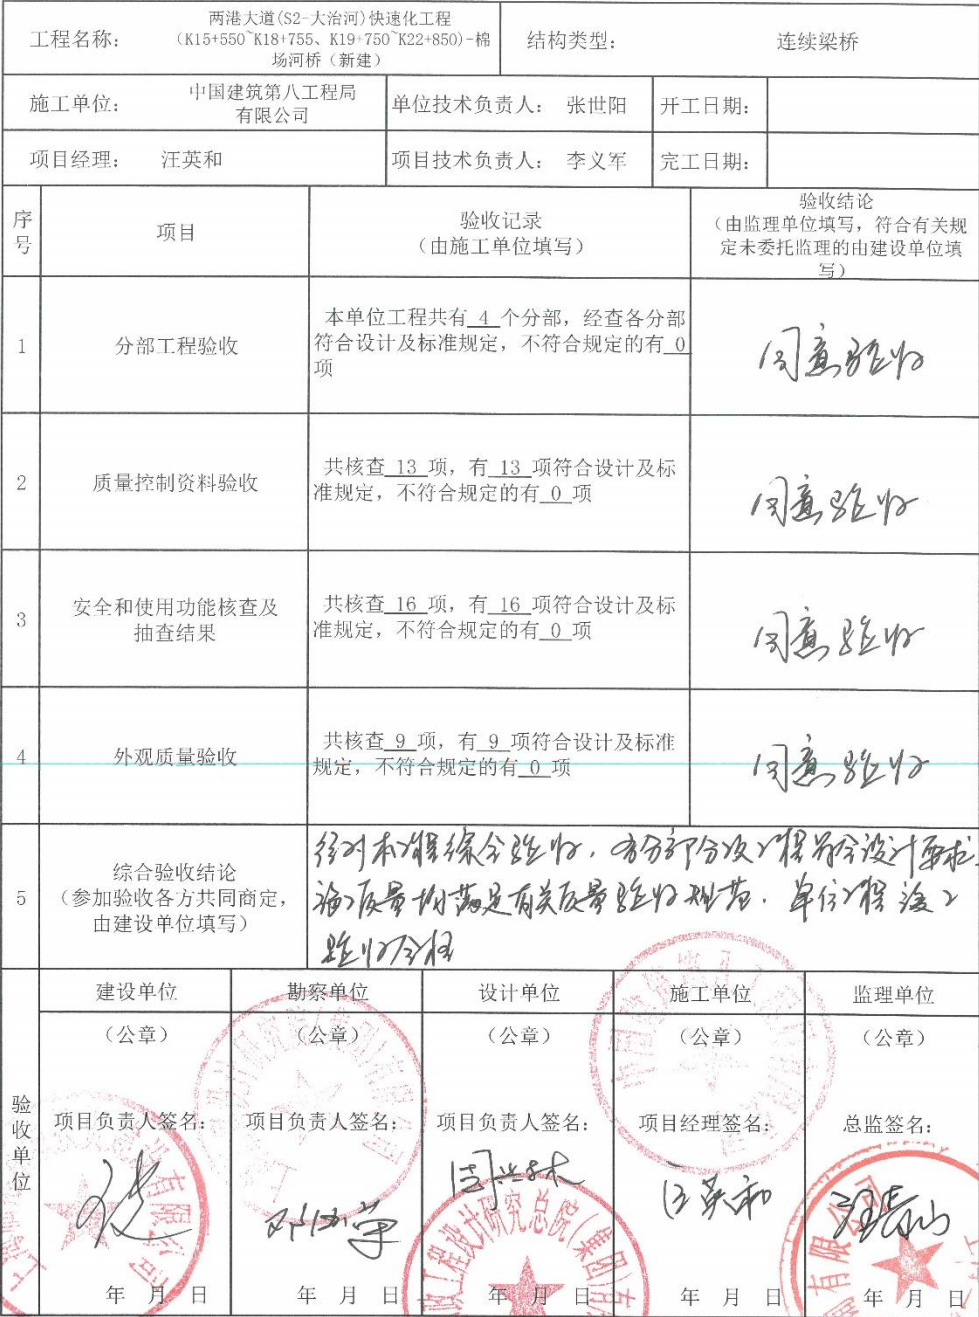 工程名称：
两港大道(S2-大治河)快速化工程
（K15+550~K18+755、K19+750~K22+850)-棉
场河桥（新建）
结构类型：
连续梁桥
施工单位：
中国建筑第八工程局
有限公司
单位技术负责人：
张世阳
开工日期：
项目经理：
汪英和
项目技术负责人：
李义军
完工日期：
序
号
项目
验收记录
（由施工单位填写）
验收结论
（由监理单位填写，符合有关规
定未委托监理的由建设单位填
写）
1
分部工程验收
本单位工程共有 4 个分部，经查各分部
符合设计及标准规定，不符合规定的有 0
项
同意验收
2
质量控制资料验收
共核查 13 项，有 13 项符合设计及标
准规定，不符合规定的有 0 项
同意验收
3
安全和使用功能核查及
抽查结果
共核查 16 项，有 16 项符合设计及标
准规定，不符合规定的有 0 项
同意验收
4
外观质量验收
共核查 9 项，有 9 项符合设计及标准
规定，不符合规定的有 0 项
同意验收
5
综合验收结论
（参加验收各方共同商定，
由建设单位填写）
经对本工程综合验收，各分部分项工程符合设计要求，
施工质量均满足有关质量验收规范，单位工程竣工
验收合格
验收单位
建设单位
勘察单位
设计单位
施工单位
监理单位
（公章）
（公章）
（公章）
（公章）
（公章）
项目负责人签名：
项目负责人签名：
项目负责人签名：
项目经理签名：
总监签名：
汪英和
年 月 日
年 月 日
年 月 日
年 月 日
年 月 日
有限公司
工程设计研究总院（集团）有
有限公司